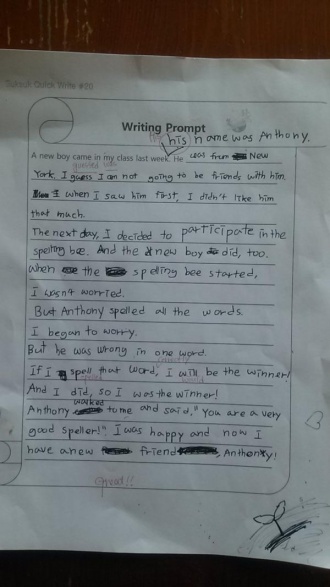 Tukpuk Quick Write #20
Writing Prompt
his name was Anthony.
A new boy came in my class last week. He was from New
guessed was
York. I guess I am not going to be friends with him.
I when I saw him first, I didn't like him
that much.
The next day, I decided to participate in the
spelling bee. And the new boy did, too.
when the spelling bee started,
I wasn't worried.
But Anthony spelled all the words.
I began to worry.
But he was wrong in one word.
If I spell that word, I will be the winner!
And I did, so I was the winner!
walked
Anthony to me and said, "You are a very
good speller!" I was happy and now I
have a new friend, Anthony!
Great!!